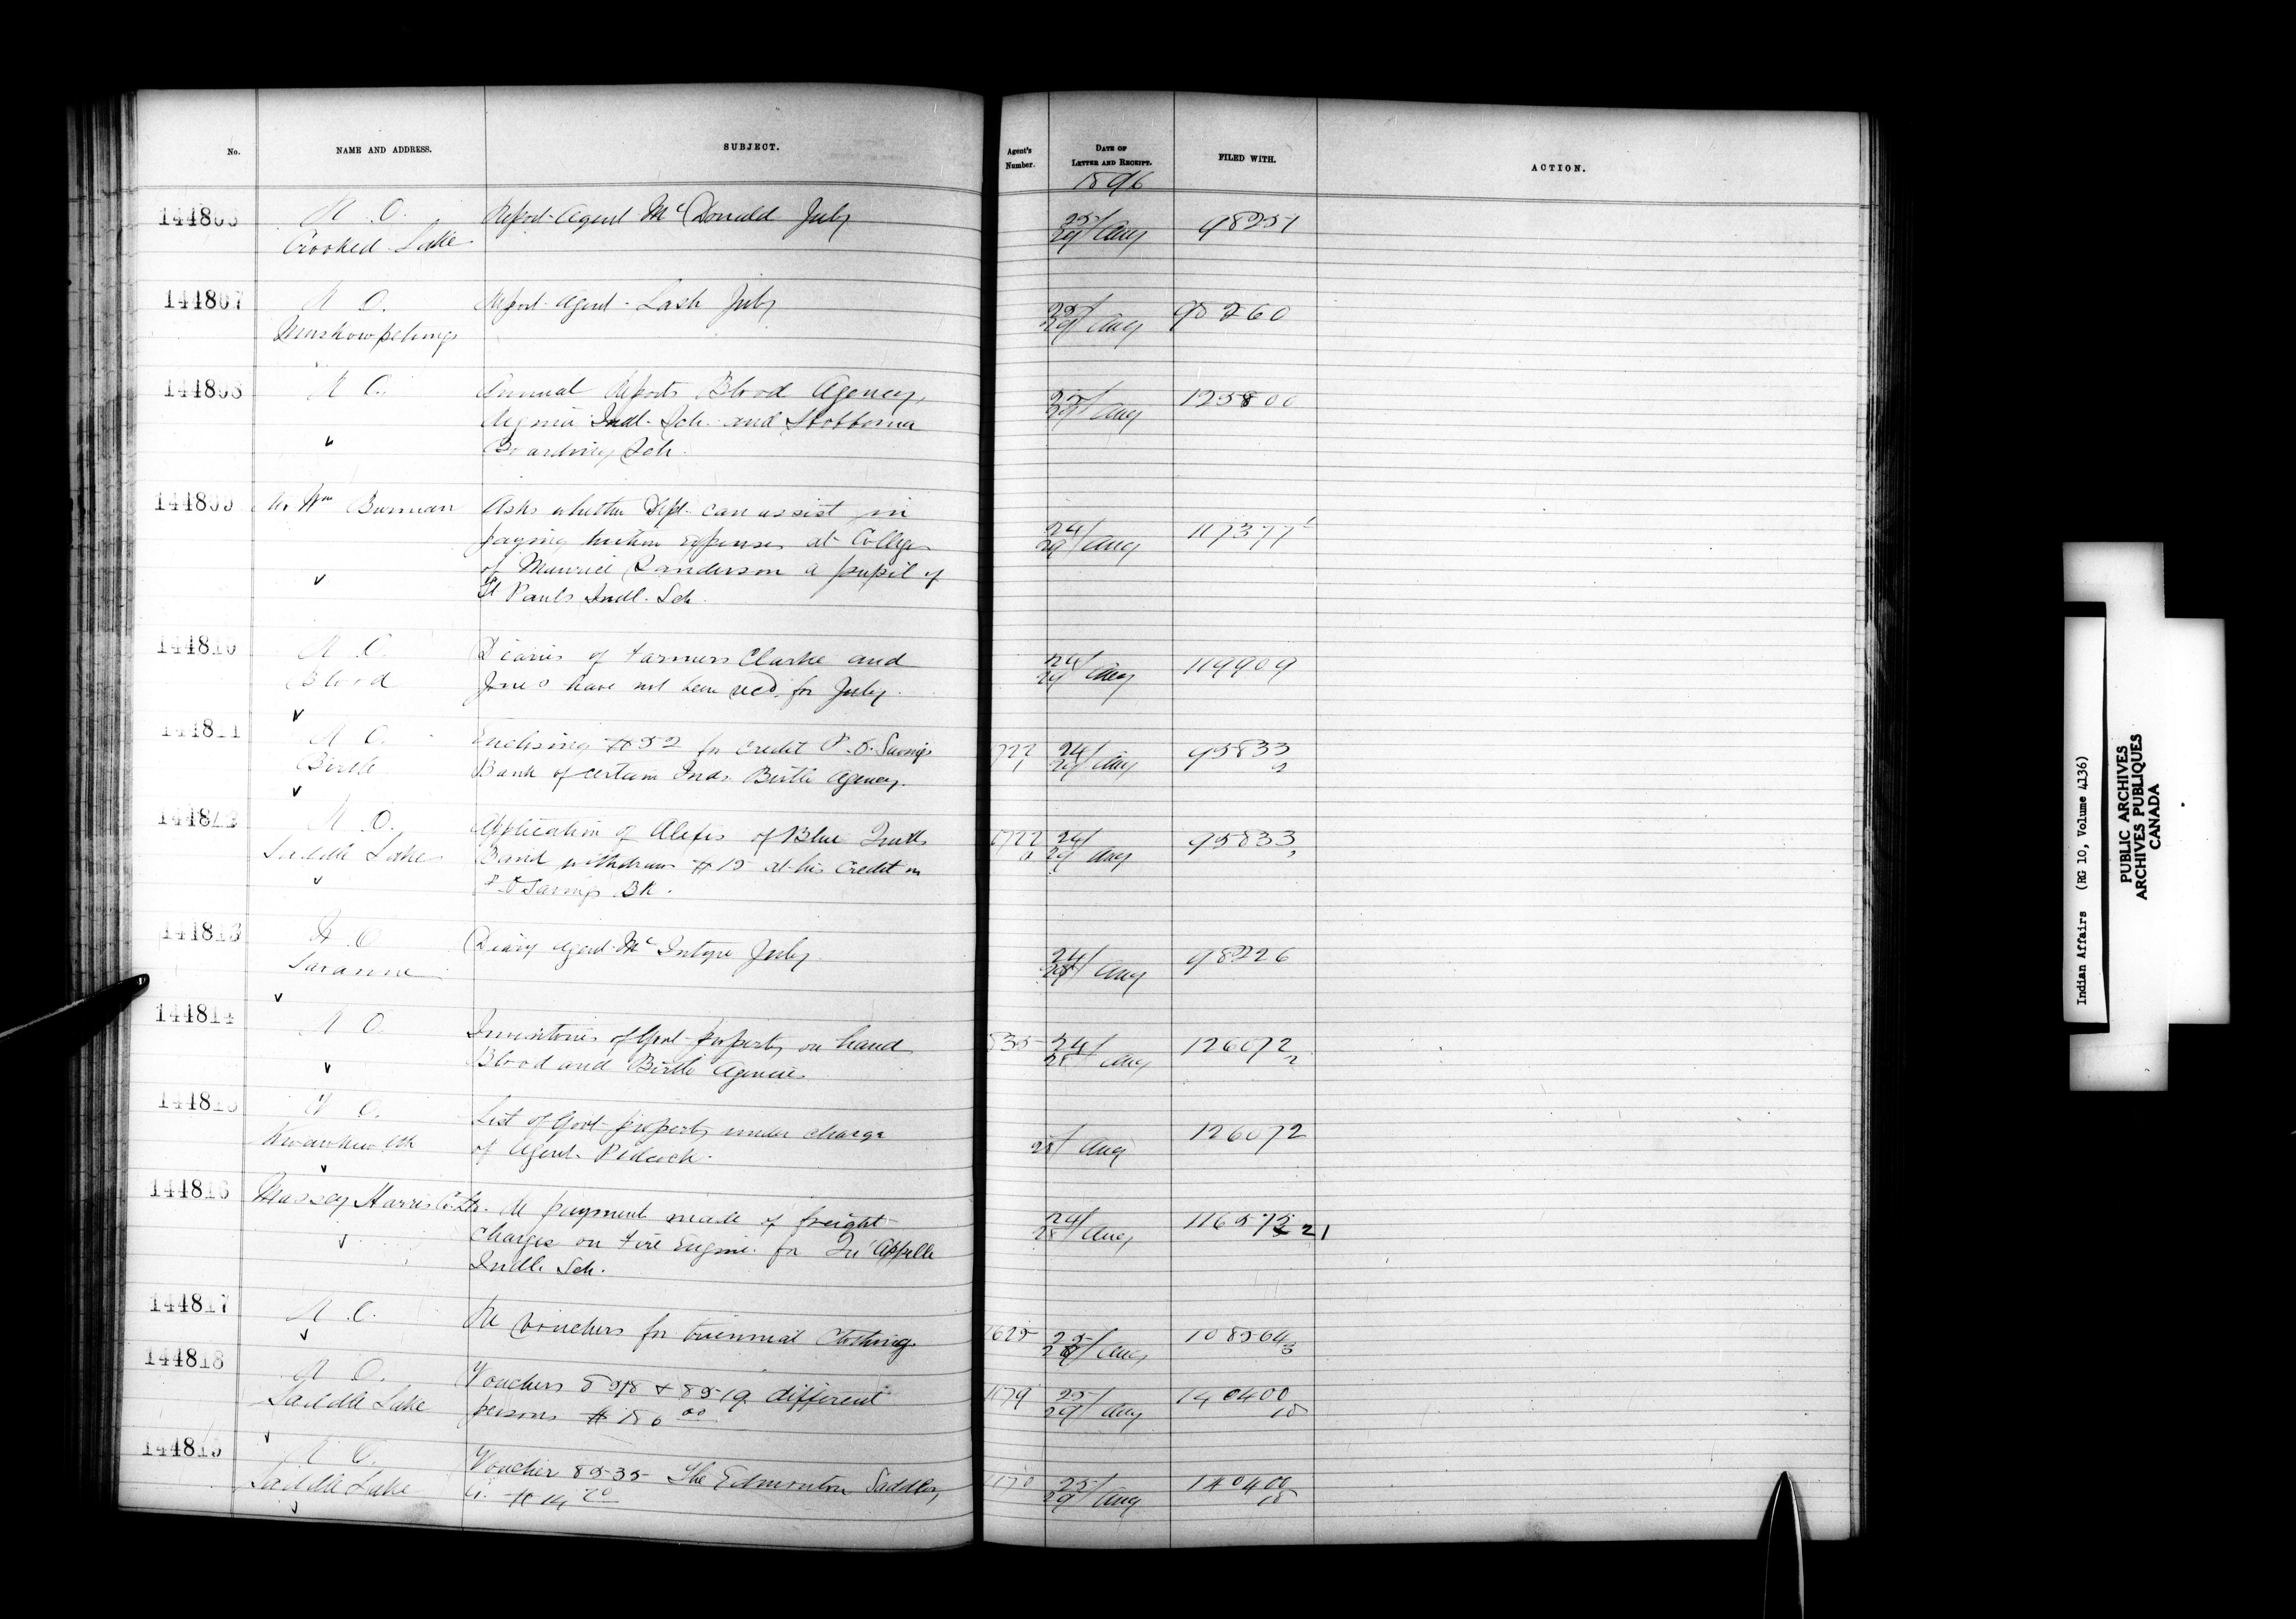 No.
NAME AND ADDRESS.
SUBJECT.
Agent's Number.
DATE OF LETTER AND RECEIPT.
FILED WITH.
ACTION.
1896
144806 R. O. Report Agent McDonald July 25/29 Aug 98251
Crooked Lake
144807 R. O. Report Agent Lash July 25/29 Aug
Muskowpetungs
144808 R. O. Annual Reports Blood Agency, 25/29 Aug 125800
Regina Indl. Sch. and Hobbema
Boarding Sch.
144809 Wm Burman Asks whether Dept. can assist in 24/29 Aug 117377
paying tuition expenses at College
of Maurice Sanderson a pupil of
St Pauls Indl. Sch.
144810 R. O. Diaries of Farmers Clarke and 24/29 Aug 119909
Blood Jones have not been recd for July.
144811 R. O. Enclosing $52 for credit P.O. Savings 24/29 Aug 95833
Birtle Bank of certain Inds. Birtle Agency.
144812 R. O. Application of Alexis of Blue Quills 24/29 Aug 95833
Saddle Lake Band withdraw $15 at his credit in
P.O Savings Bk.
144813 R. O. Diary Agent McIntyre July 24/28 Aug 98226
144814 R. O. Inventories of Govt property on hand 835 24/28 Aug 126072 2
Blood and Birtle Agencies
144815 R. O. List of Govt property under charge 28/ Aug 126072
of Agent Pidcock.
144816 Massey Harris Co. Re payment made of freight 24/28 Aug 21
charges on Fire Engine for Qu'Appelle
Indl. Sch.
144817 R. O. Re vouchers for triennial clothing 1625 25/28 Aug 108564 3
144818 R. O. Vouchers & 8519 different 1179 25/29 Aug 140400
Saddle Lake persons
144819 R. O. Voucher 8535 The Edmonton Saddlery 25/29 Aug 140400
Saddle Lake
Indian Affairs (RG 10, Volume 4136)
PUBLIC ARCHIVES
ARCHIVES PUBLIQUES
CANADA